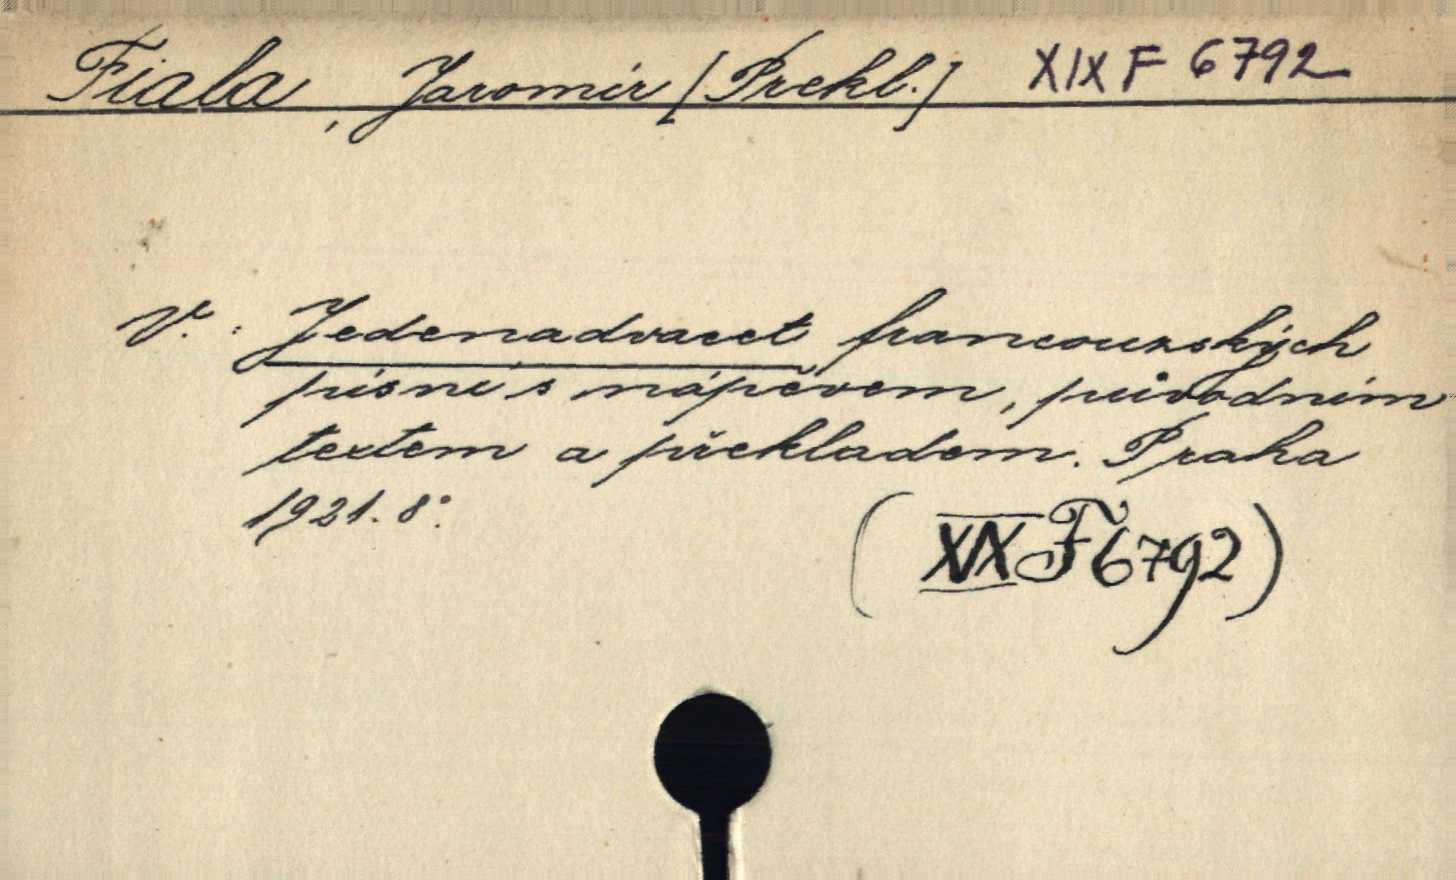 Fiala, Jaromír [Překl.] XIX F 6792
V.: Jedenadvacet francouzských
písní s nápěvem, původním
textem a překladem. Praha
1921. 8°.
(XIX F 6792)